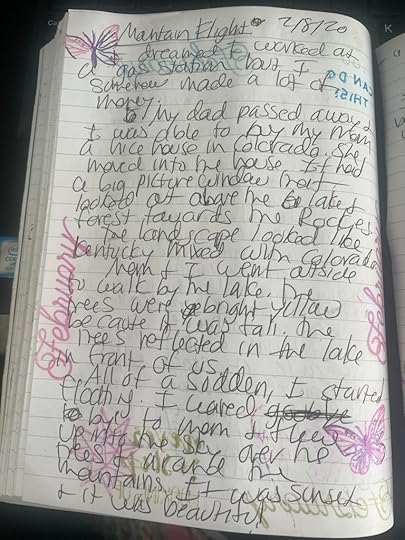 Mantain Flight 2/8/20
I dreamed I worked at
a gas station but I
somehow made a lot of
money.
My dad passed away &
I was able to buy my mom
a nice house in Colorado. She
moved into the house. It had
a big picture window that
looked out above the lake &
forest towards the Rockies.
The landscape looked like
Kentucky mixed with Colorado.
Mom & I went outside
to walk by the lake. The
trees were bright yellow
because it was fall. The
trees reflected in the lake
in front of us.
All of a sudden, I started
floating. I waved
bye to mom & flew
up into the sky over the
trees & toward the
mountains. It was sunset
& it was beautiful
CAN DO
THIS!
February